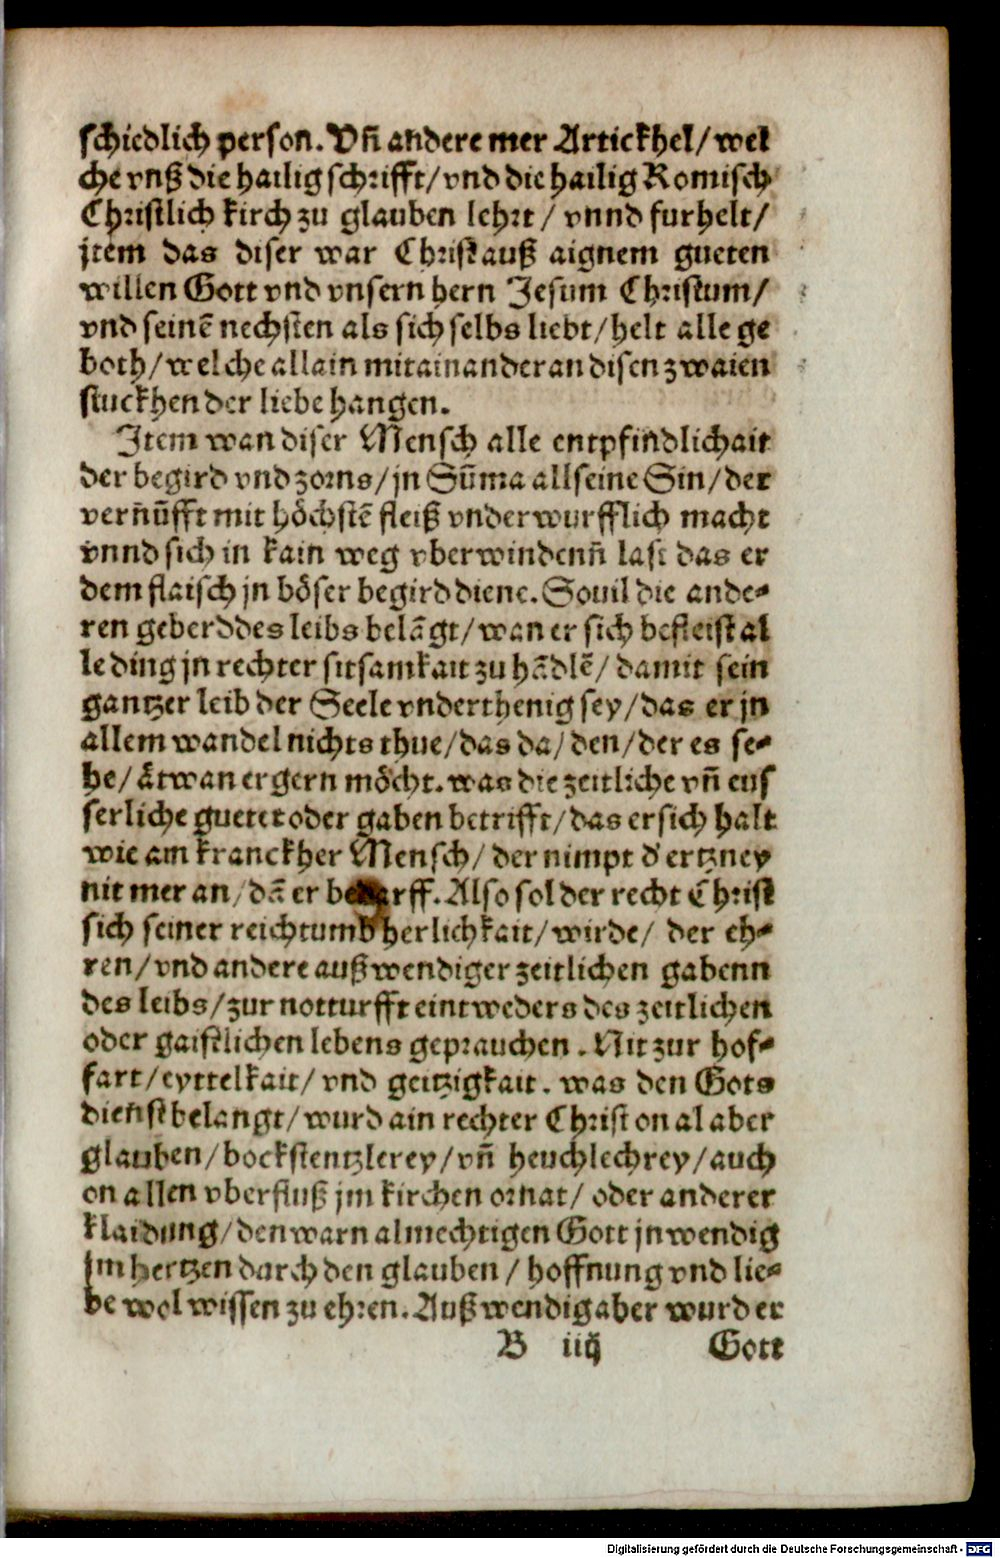 schiedlich person. Vñ andere mer Artickhel/ wel
che vnß die hailig schrifft/ vnd die hailig Romisch
Christlich kirch zu glauben lehrt/ vnnd furhelt/
jtem das diser war Christ auß aignem gueten
willen Gott vnd vnsern hern Jesum Christum/
vnd seinē nechsten als sich selbs liebt/ helt alle ge
both/ welche allain mitainander an disen zwaien
stuckhen der liebe hangen.
Item wan diser Mensch alle entpfindlichait
der begird vnd zorns/ jn Sūma all seine Sin/ der
verñūfft mit höchstē fleiß vnderwurfflich macht
vnnd sich in kain weg vberwindenñ last das er
dem flaisch jn böser begird diene. Souil die ande-
ren geberd des leibs belāgt/ wan er sich befleist al
le ding jn rechter sitsamkait zu hādlē/ damit sein
gantzer leib der Seele vnderthenig sey/ das er jn
allem wandel nichts thue/ das da/ den/ der es se-
he/ ätwan ergern möcht. was die zeitliche vñ eus
serliche gueter oder gaben betrifft/ das er sich halt
wie am kranckher Mensch/ der nimpt d' ertzney
nit mer an/ dā er bedarff. Also sol der recht Christ
sich seiner reichtumb herlichkait/ wirde/ der eh-
ren/ vnd andere außwendiger zeitlichen gabenn
des leibs/ zur notturfft eintweders des zeitlichen
oder gaistlichen lebens geprauchen. Nit zur hof-
fart/ eyttelkait/ vnd geitzigkait. was den Gots
dieñst belangt/ wurd ain rechter Christ on al aber
glauben/ bockstentzlerey/ vñ heuchlechrey/ auch
on allen vberfluß jm kirchen ornat/ oder anderer
klaidung/ den warn almechtigen Gott jnwendig
jm hertzen durch den glauben/ hoffnung vnd lie-
be wol wissen zu ehren. Außwendig aber wurd er
B iiij Gott
Digitalisierung gefördert durch die Deutsche Forschungsgemeinschaft - DFG